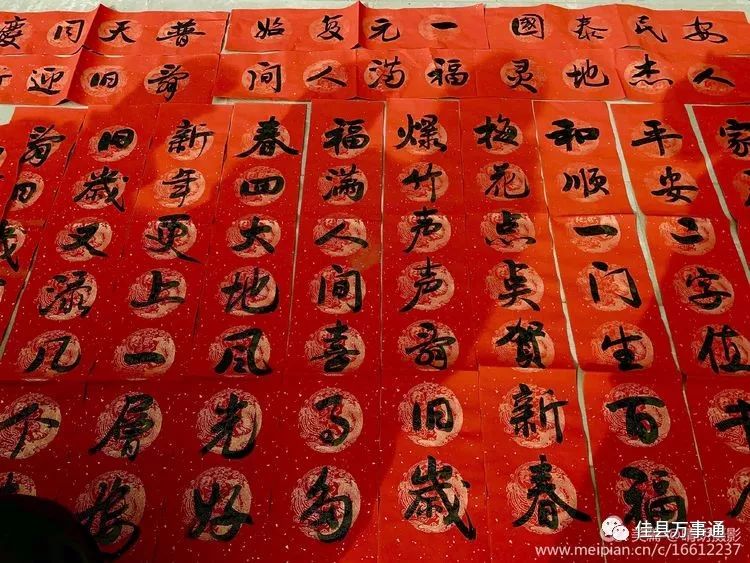 普天同慶
一元复始
國泰民安
辞旧迎
福满人间
人杰地灵
家
平安二字值
和顺一门生百福
梅花点点贺新春
爆竹声声辞旧岁
福满人间喜事多
春回大地风光好
新年更上一層楼
旧岁又添几个
佳县万事通
www.meipian.cn/c/16612237